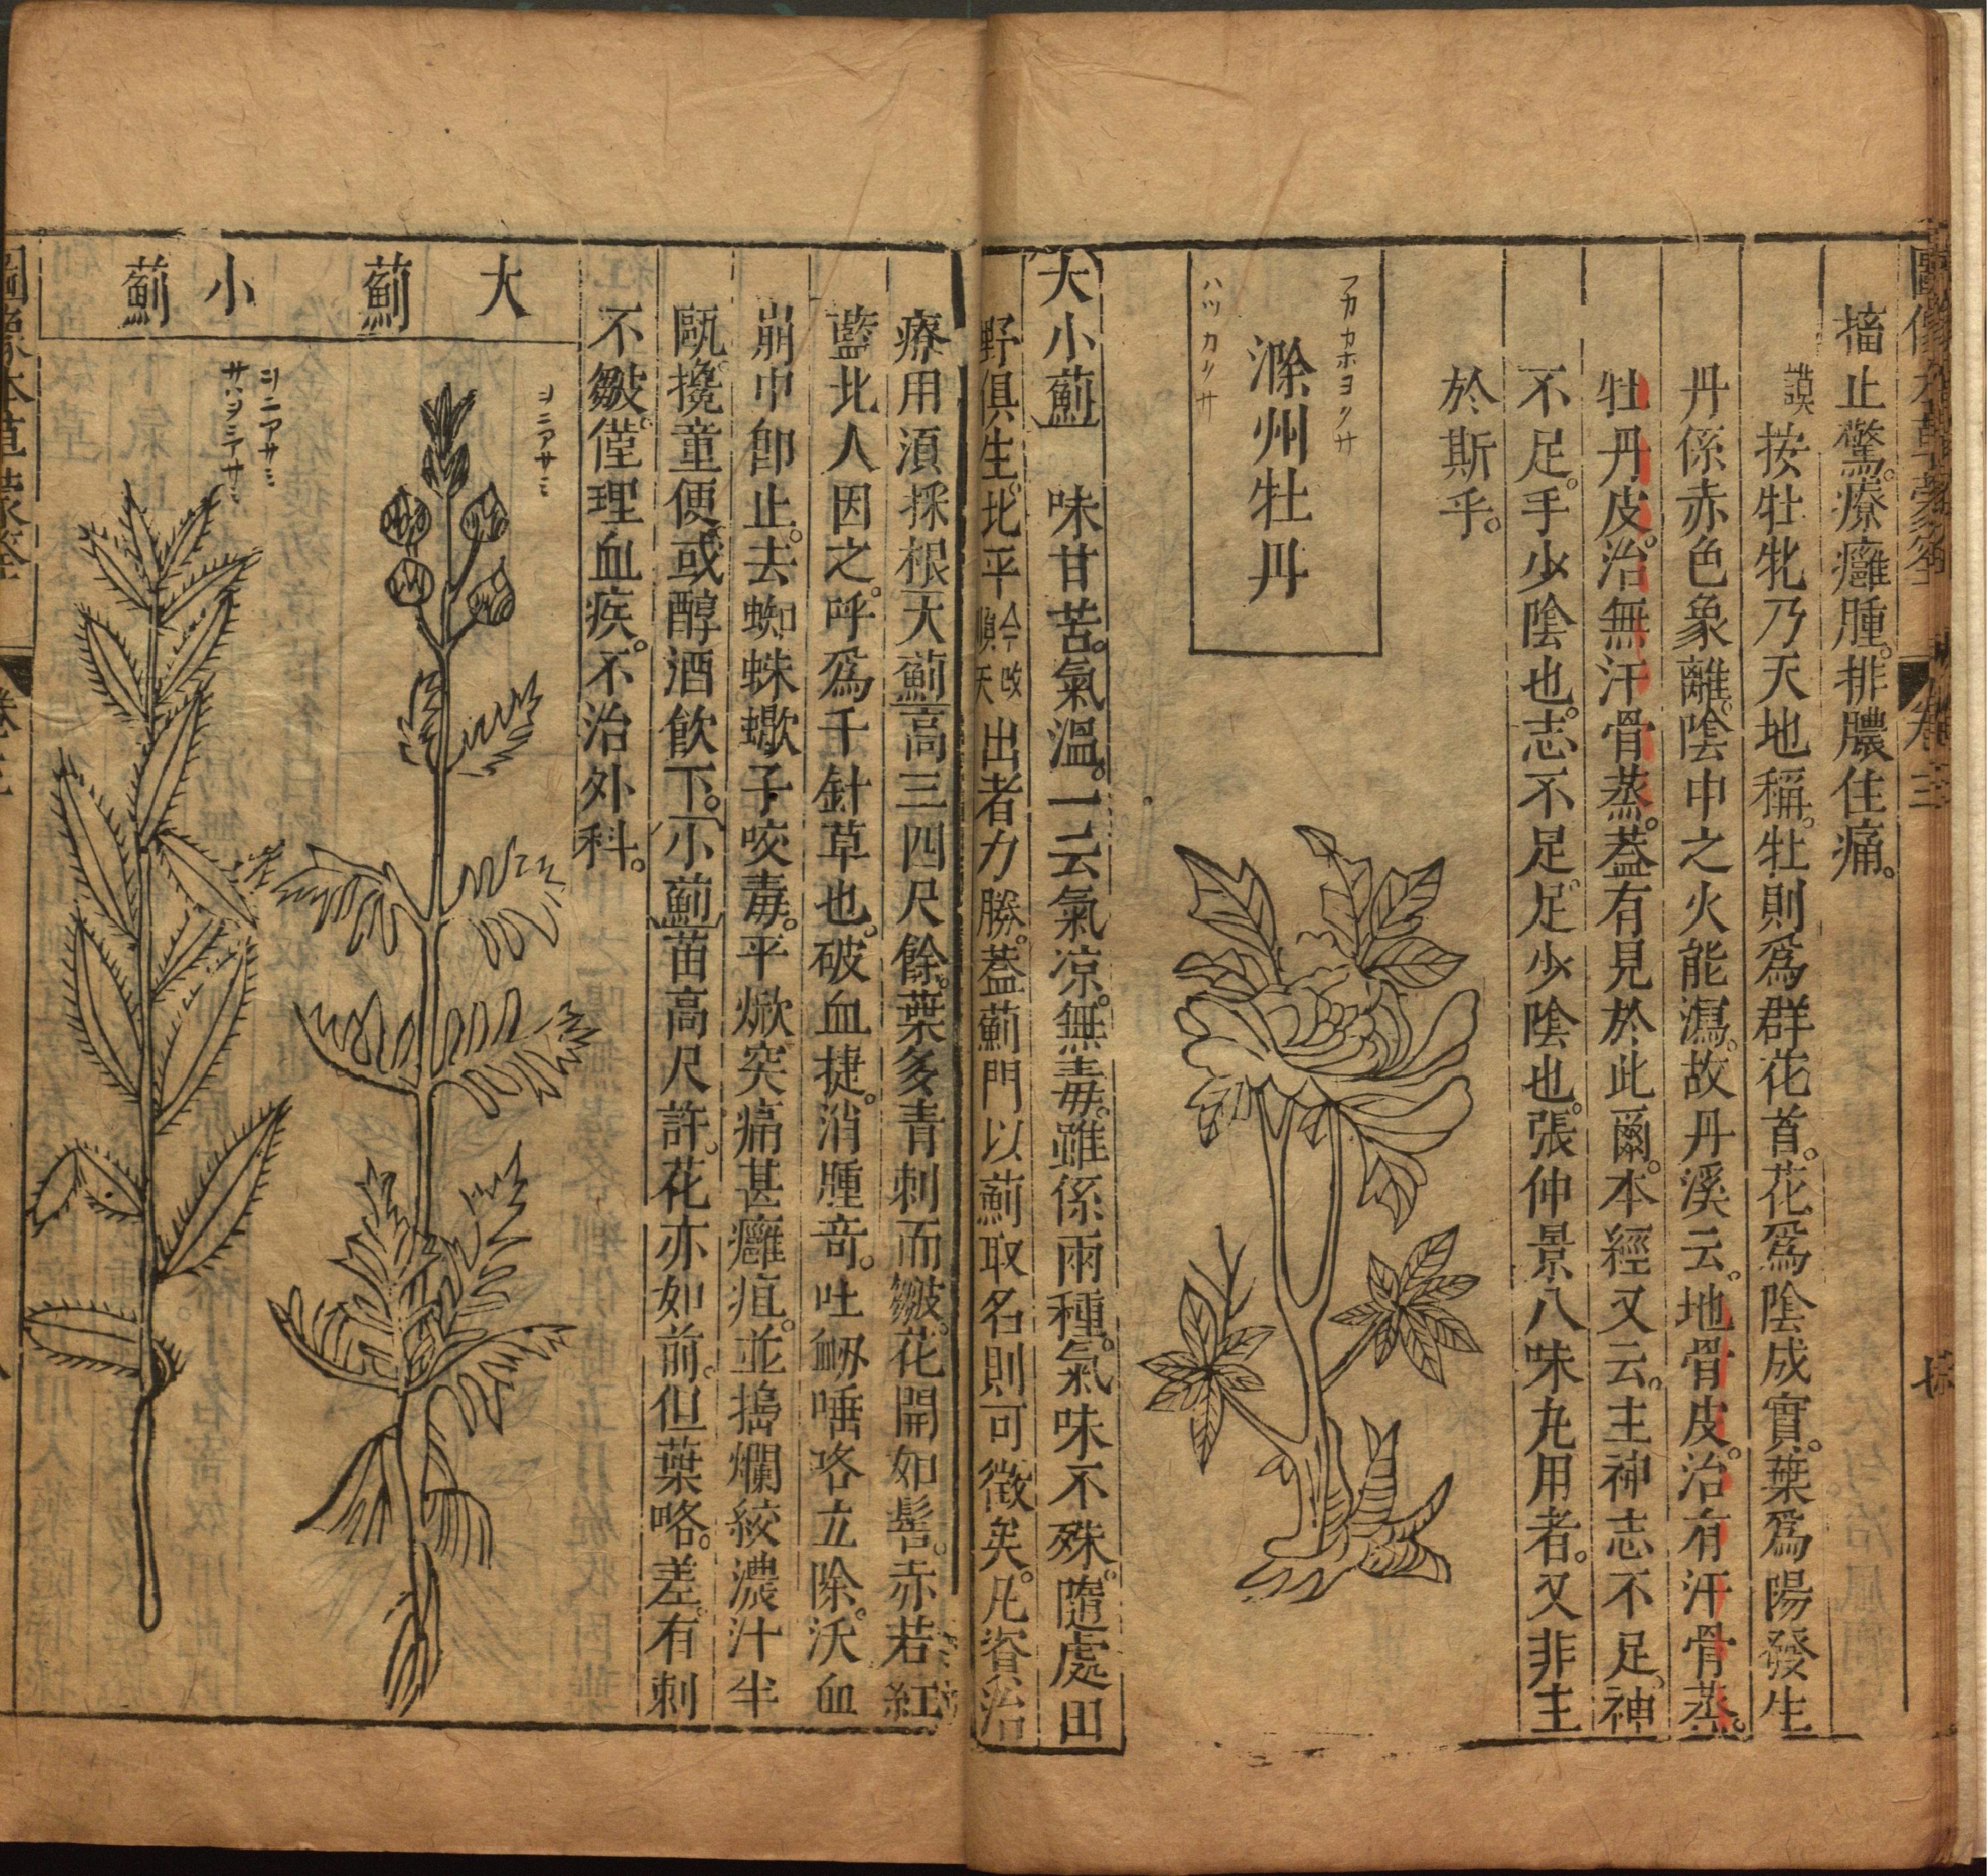 搐止驚。療癰腫。排膿住痛。
謨按牡牝乃天地稱。牡則爲群花首。花爲陰成實。葉爲陽發生
丹係赤色象離。陰中之火能瀉。故丹溪云。地骨皮。治有汗骨蒸。
牡丹皮。治無汗骨蒸。蓋有見於此爾。本經又云。主神志不足。神
不足。手少陰也。志不足。足少陰也。張仲景八味丸用者。又非主
於斯乎。
フカホヨクサ
滁州牡丹
ハツカクサ
大小薊 味甘苦。氣溫。一云氣凉。無毒。雖係兩種。氣味不殊。隨處田
野俱生。北平
今改
順天
出者力勝。蓋薊門以薊取名則可徵矣。凡資治
療用須採根。大薊高三四尺餘。葉多青刺而皺。花開如髻。赤若紅
藍。北人因之。呼爲千針草也。破血捷。消腫奇。吐衂唾咯立除。沃血
崩中卽止。去蜘蛛蠍子咬毒。平焮突痛甚癰疽。並搗爛絞濃汁半
甌。攙童便或醇酒飲下。小薊苗高尺許。花亦如前。但葉略。差。有刺
不皺。僅理血疾。不治外科。
大薊
小薊
ヲニアサミ
ヲニアサミ
サハヲニアサミ
卷三